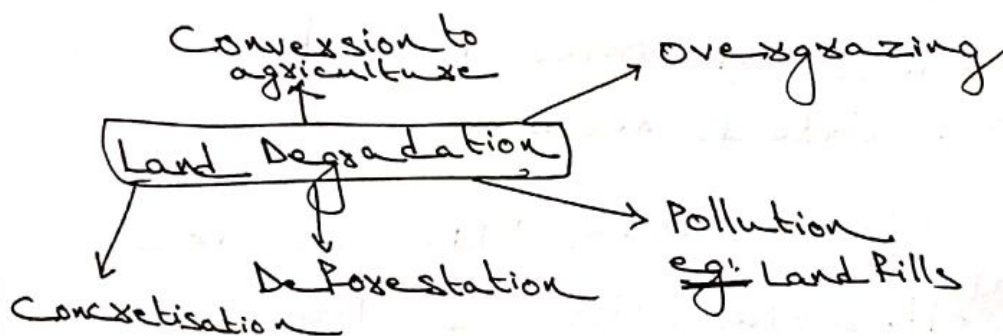 Conversion to
agriculture
Overgrazing
Land Degradation
Pollution
eg: Land Fills
Deforestation
Concretisation